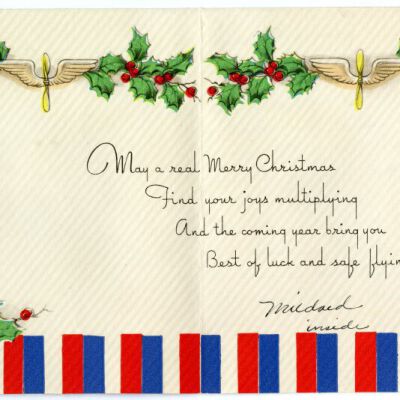 May a real Merry Christmas
Find your joys multiplying
And the coming year bring you
Best of luck and safe flyin
Mildred
inside